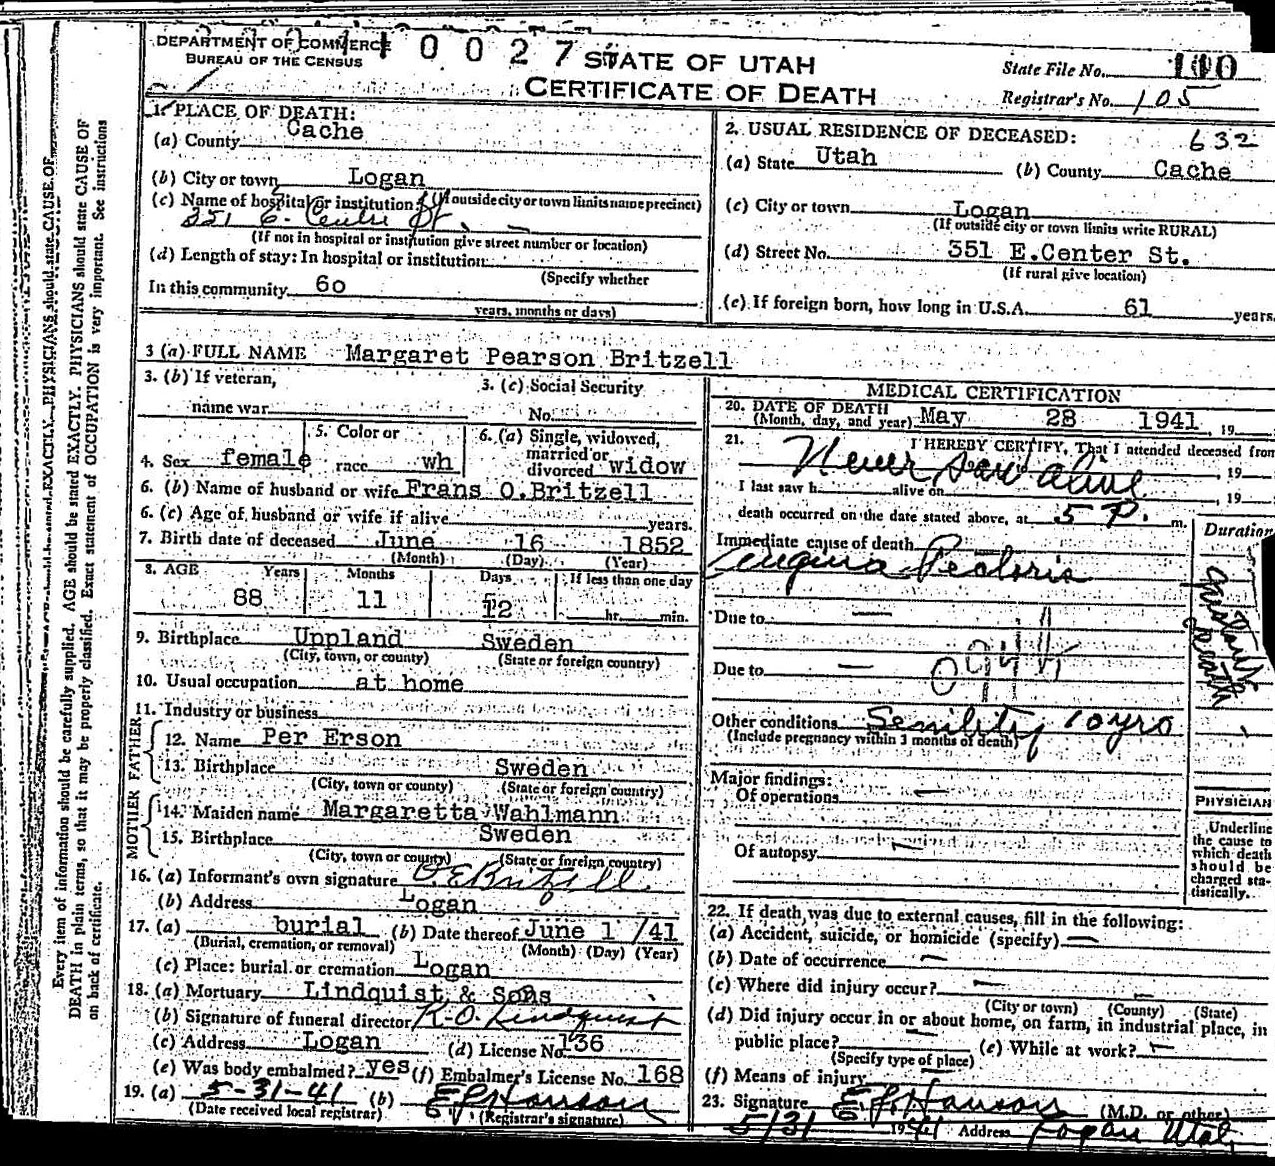 DEPARTMENT OF COMMERCE
BUREAU OF THE CENSUS
0 0 2 7
STATE OF UTAH
CERTIFICATE OF DEATH
State File No. 110
Registrar's No. 105
1. PLACE OF DEATH:
(a) County Cache
(b) City or town Logan
(c) Name of hospital or institution: (If outside city or town limits name precinct)
351 E. Center St.
(If not in hospital or institution give street number or location)
(d) Length of stay: In hospital or institution
(Specify whether
In this community 60
years, months or days)
2. USUAL RESIDENCE OF DECEASED: 632
(a) State Utah (b) County Cache
(c) City or town Logan
(If outside city or town limits write RURAL)
(d) Street No. 351 E.Center St.
(If rural give location)
(e) If foreign born, how long in U.S.A. 61 years.
3 (a) FULL NAME Margaret Pearson Britzell
3. (b) If veteran,
name war
3. (c) Social Security
No.
4. Sex female
5. Color or
race wh
6. (a) Single, widowed,
married or
divorced widow
6. (b) Name of husband or wife Frans O.Britzell
6. (c) Age of husband or wife if alive years.
7. Birth date of deceased June 16 1852
(Month) (Day) (Year)
8. AGE Years Months Days If less than one day
88 11 12 hr. min.
9. Birthplace Uppland Sweden
(City, town, or county) (State or foreign country)
10. Usual occupation at home
11. Industry or business
FATHER
12. Name Per Erson
13. Birthplace Sweden
(City, town or county) (State or foreign country)
MOTHER
14. Maiden name Margaretta Wahlmann
15. Birthplace Sweden
(City, town or county) (State or foreign country)
16. (a) Informant's own signature O.E.Britzell
(b) Address Logan
17. (a) burial (b) Date thereof June 1 /41
(Burial, cremation, or removal) (Month) (Day) (Year)
(c) Place: burial or cremation Logan
18. (a) Mortuary Lindquist & Sons
(b) Signature of funeral director K.O. Lindquist
(c) Address Logan (d) License No. 136
(e) Was body embalmed? yes (f) Embalmer's License No. 168
19. (a) 5-31-41 (b) E.L. Hanson
(Date received local registrar) (Registrar's signature)
MEDICAL CERTIFICATION
20. DATE OF DEATH
(Month, day, and year) May 28 1941, 19
21. I HEREBY CERTIFY, That I attended deceased from
Never saw alive , 19
I last saw h alive on , 19
death occurred on the date stated above, at 5 P. m.
Immediate cause of death
Angina Pectoris
Duration
Due to
Due to
094b
Other conditions Senility 10yrs
(Include pregnancy within 3 months of death)
Major findings:
Of operations
Of autopsy
PHYSICIAN
Underline
the cause to
which death
should be
charged sta-
tistically.
22. If death was due to external causes, fill in the following:
(a) Accident, suicide, or homicide (specify)
(b) Date of occurrence
(c) Where did injury occur?
(City or town) (County) (State)
(d) Did injury occur in or about home, on farm, in industrial place, in
public place? (e) While at work?
(Specify type of place)
(f) Means of injury
23. Signature E.L. Hanson (M.D. or other)
5/31 1941 Address Logan Utah
Every item of information should be carefully supplied. AGE should be stated EXACTLY. PHYSICIANS should state CAUSE OF
DEATH in plain terms, so that it may be properly classified. Exact statement of OCCUPATION is very important. See instructions
on back of certificate.